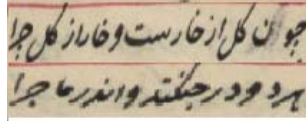 چون گل از خارست و خار از گل چرا
هر دو در جنگند و اندر ماجرا